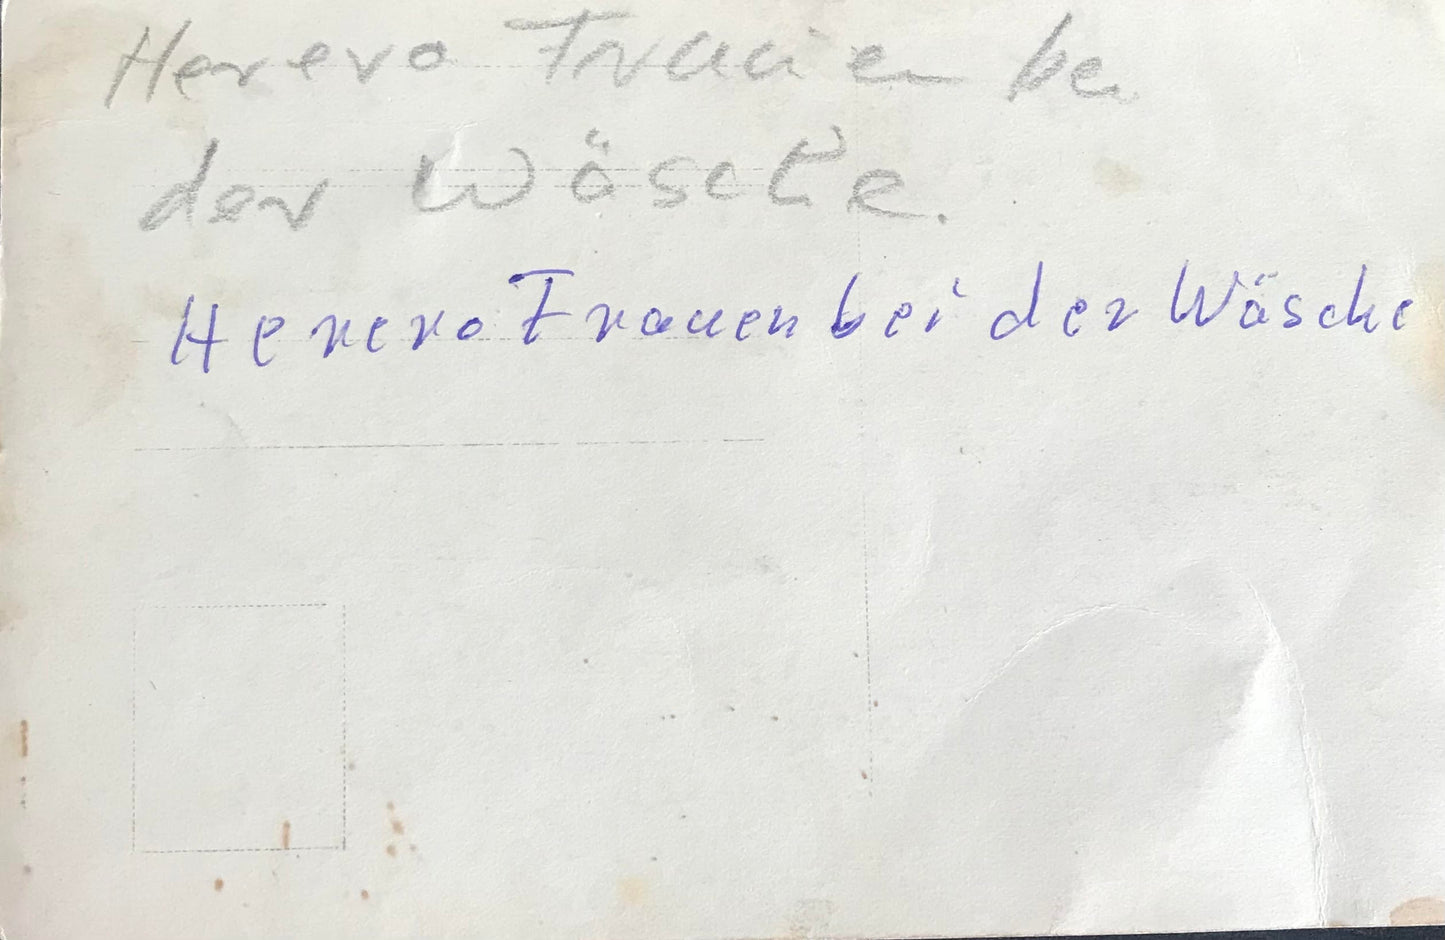 Herero Frauen bei
der Wäsche.
Herero Frauen bei der Wäsche